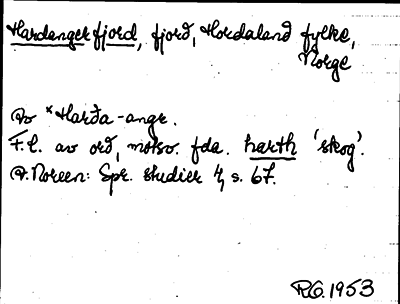 Hardangerfjord, fjord, Hordaland fylke,
Norge
Av *Harða-angr.
F.l. av ord, motsv. fda. harth 'skog'.
A. Noreen: Spr. studier 4, s. 67.
R.G. 1953